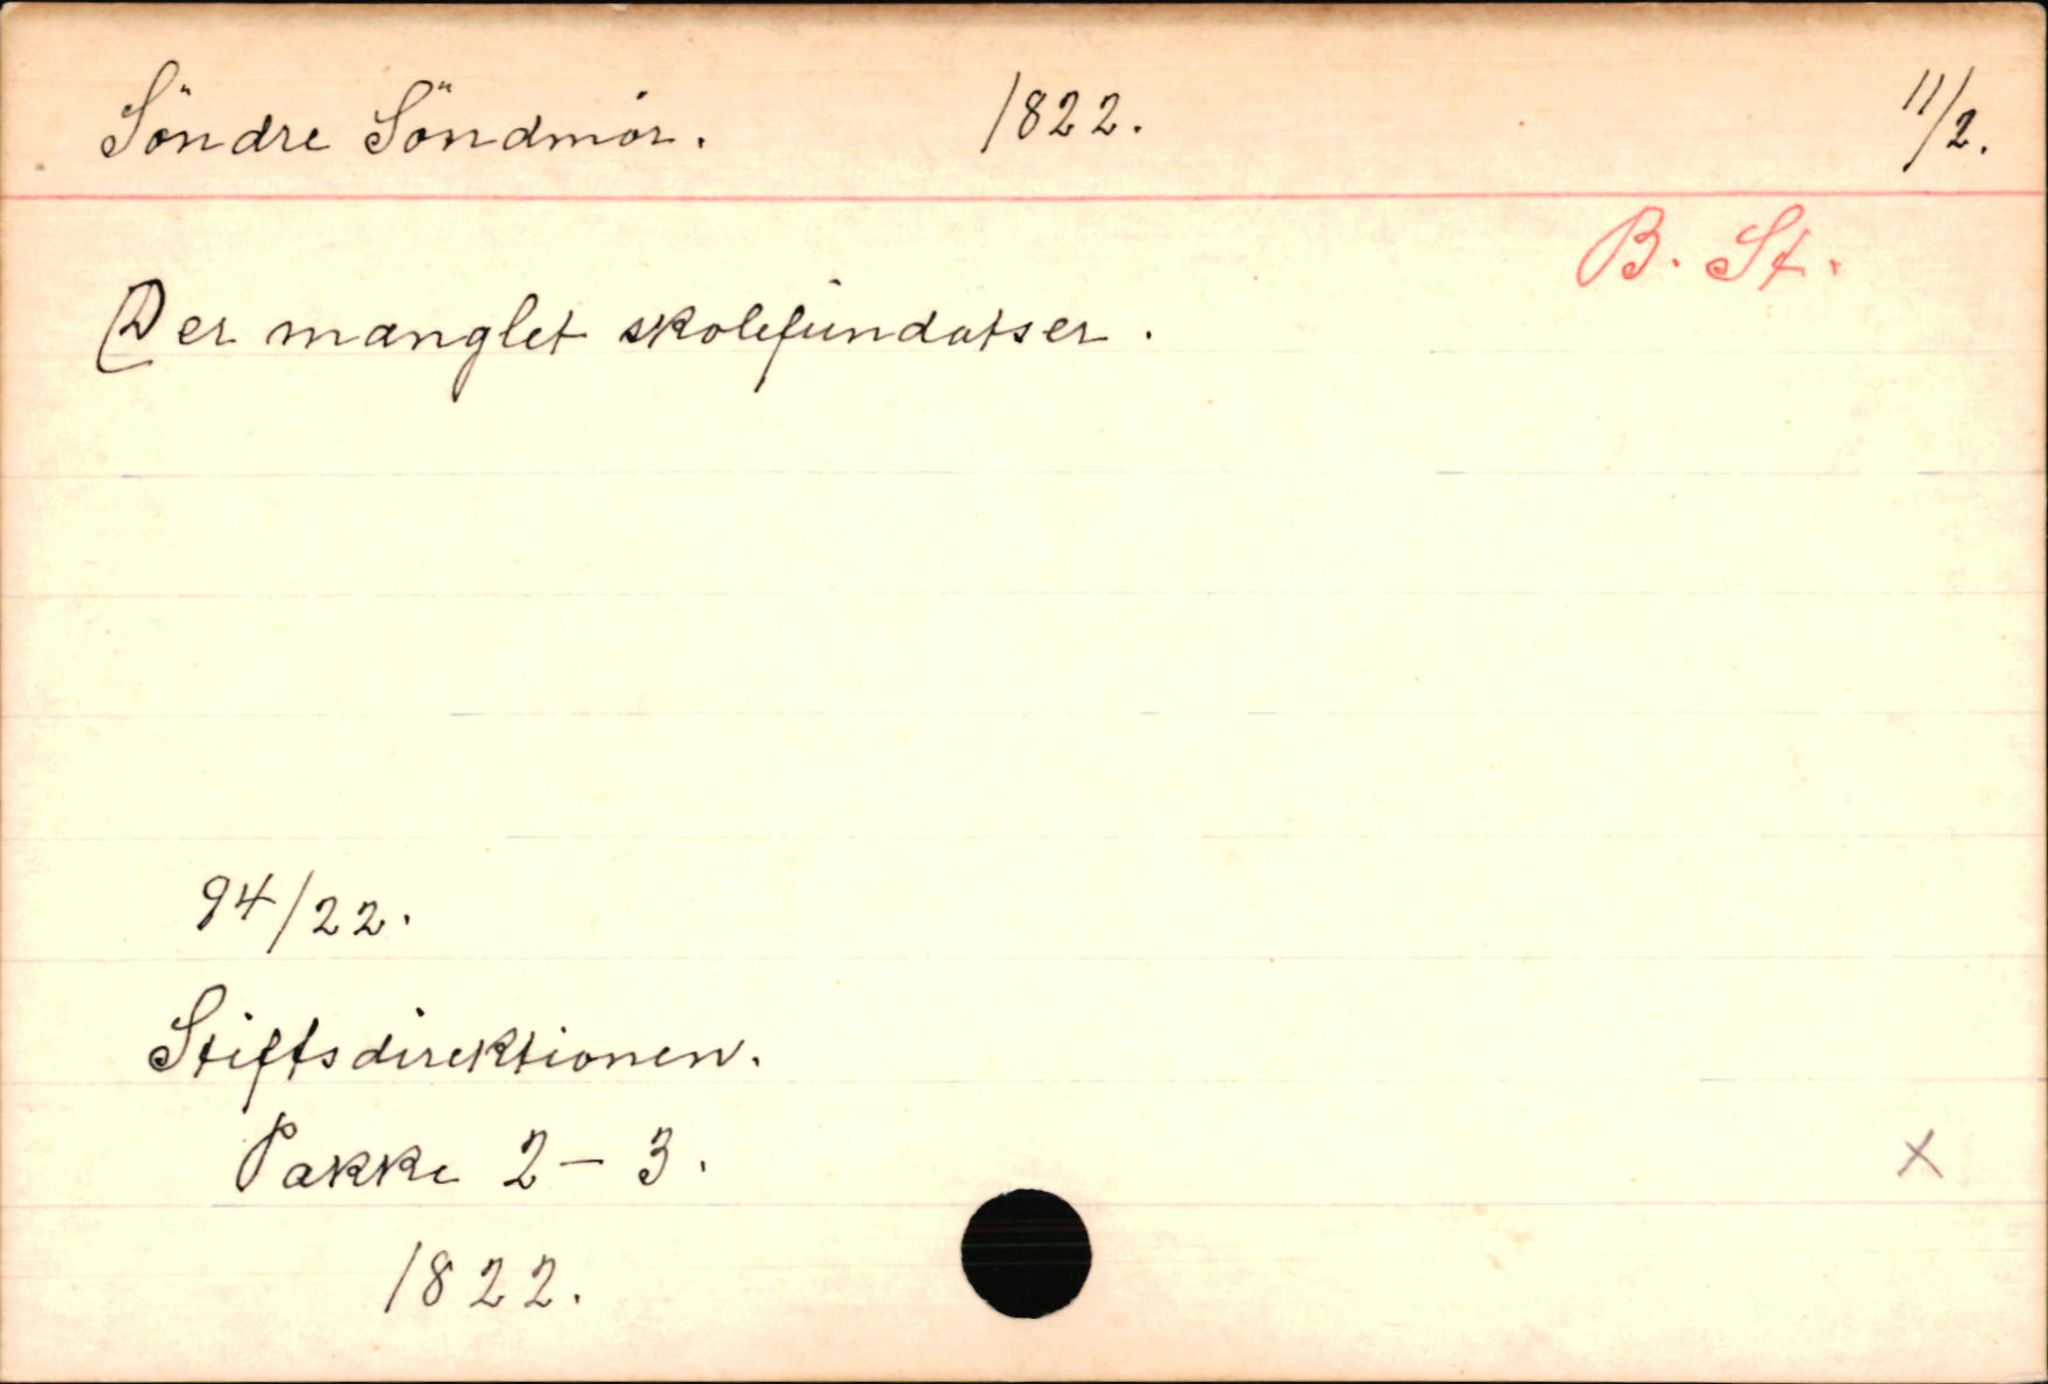 Söndre Söndmör. 1822. 11/2.
B. St.
Der manglet skolefundatser.
94/22.
Stiftsdirektionen.
Pakke 2-3.
x
1822.